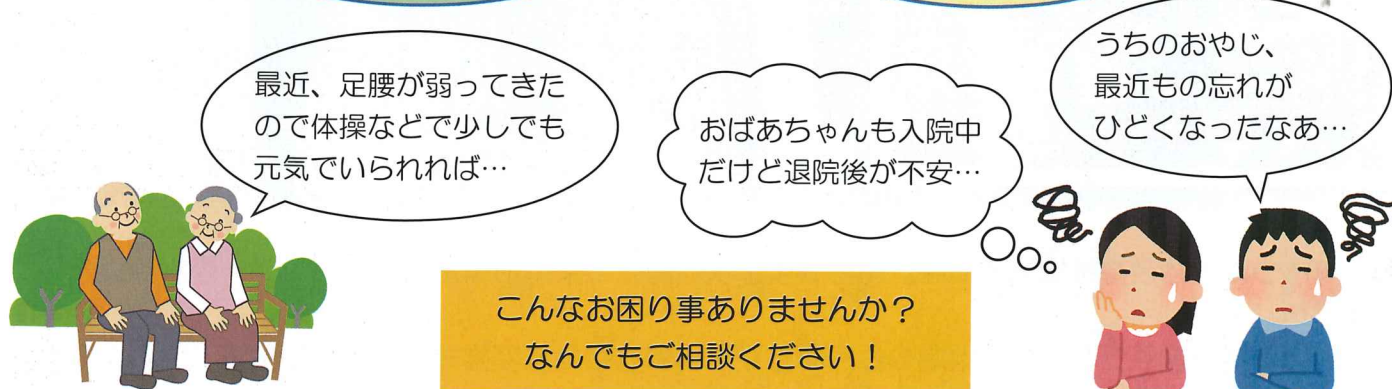 最近、足腰が弱ってきた
ので体操などで少しでも
元気でいられれば…
おばあちゃんも入院中
だけど退院後が不安…
うちのおやじ、
最近もの忘れが
ひどくなったなあ…
こんなお困り事ありませんか？
なんでもご相談ください！